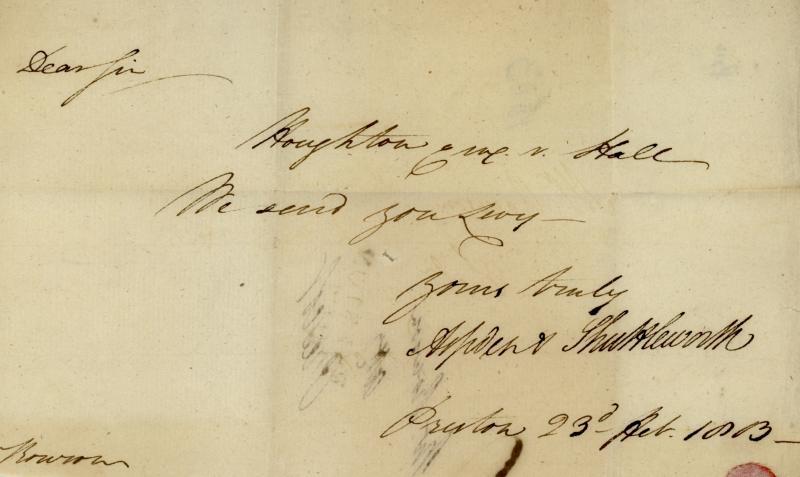 Dear Sir
Houghton & wx. v. Hall
We send you Levy—
Yours truly
Aspden & Shuttleworth
Preston 23d. Feb. 1803—